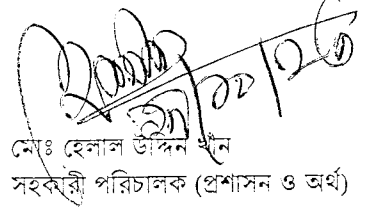 মোঃ হেলাল উদ্দিন খান
সহকারী পরিচালক (প্রশাসন ও অর্থ)